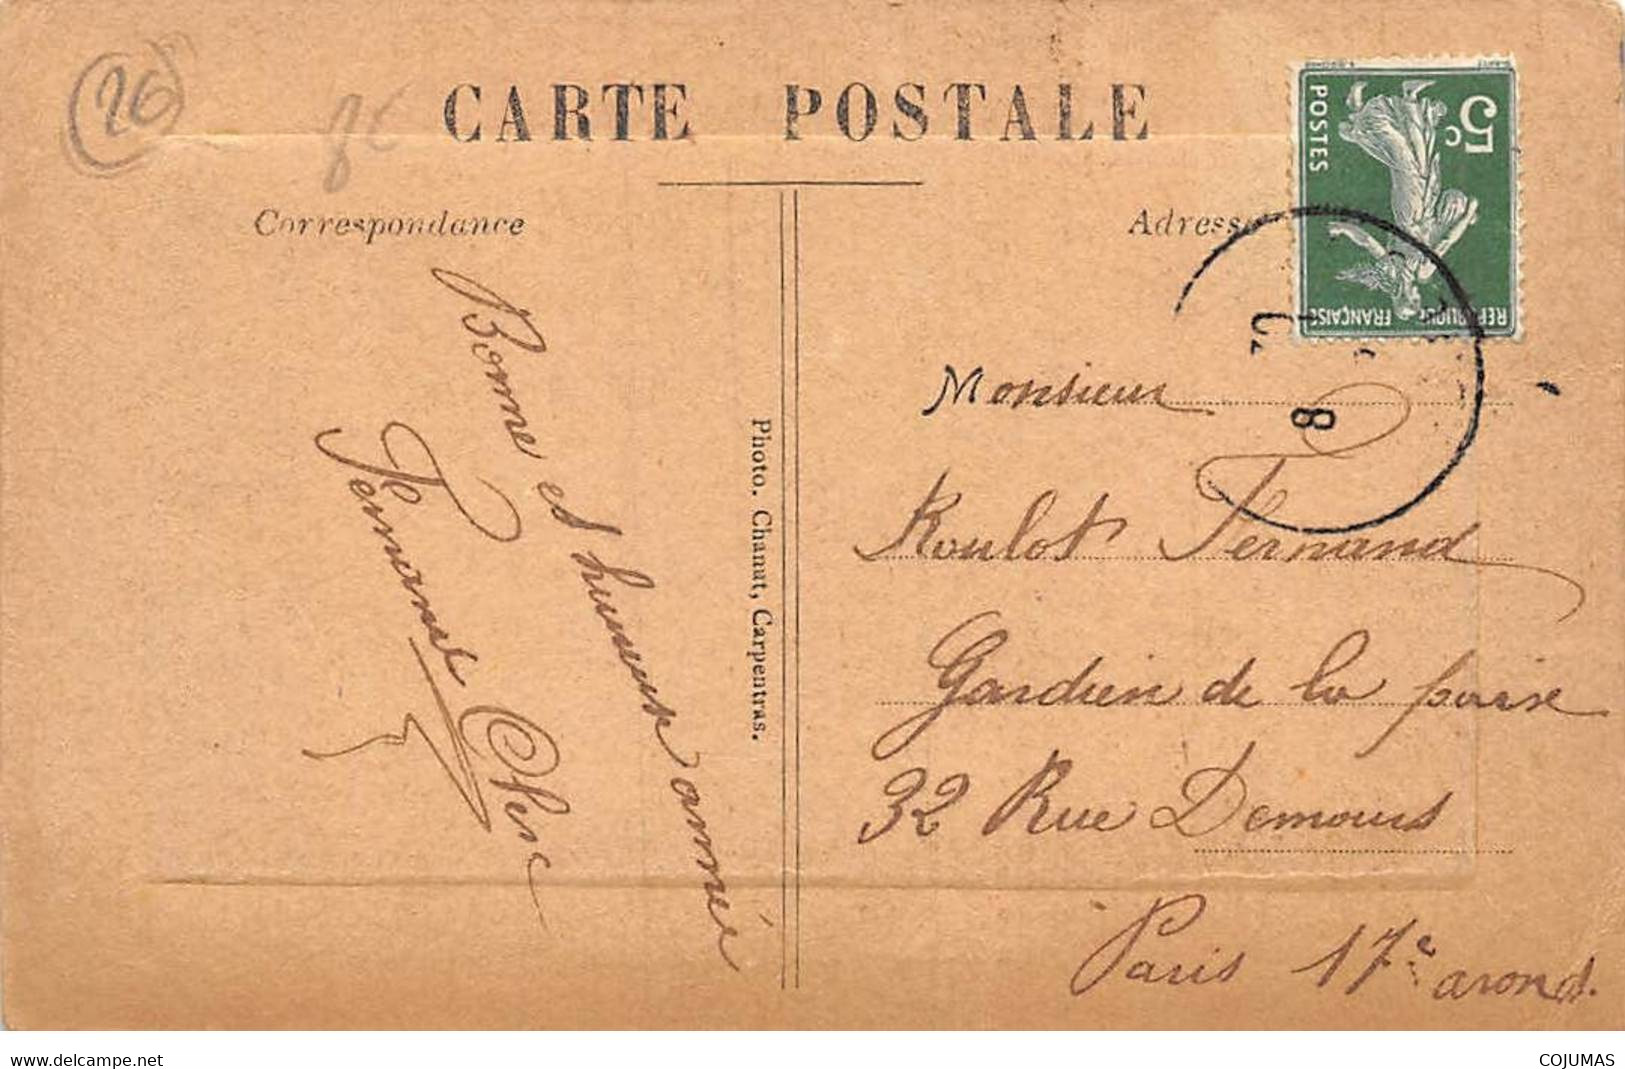 26
CARTE POSTALE
Correspondance
Adresse
5c
POSTES
REPUBLIQUE FRANÇAISE
8
Bonne et heureuse année
Fernand
Photo. Chanut, Carpentras.
Monsieur
Roulot Fernand
Gardien de la paix
32 Rue Demours
Paris 17e arond.
www.delcampe.net
COJUMAS